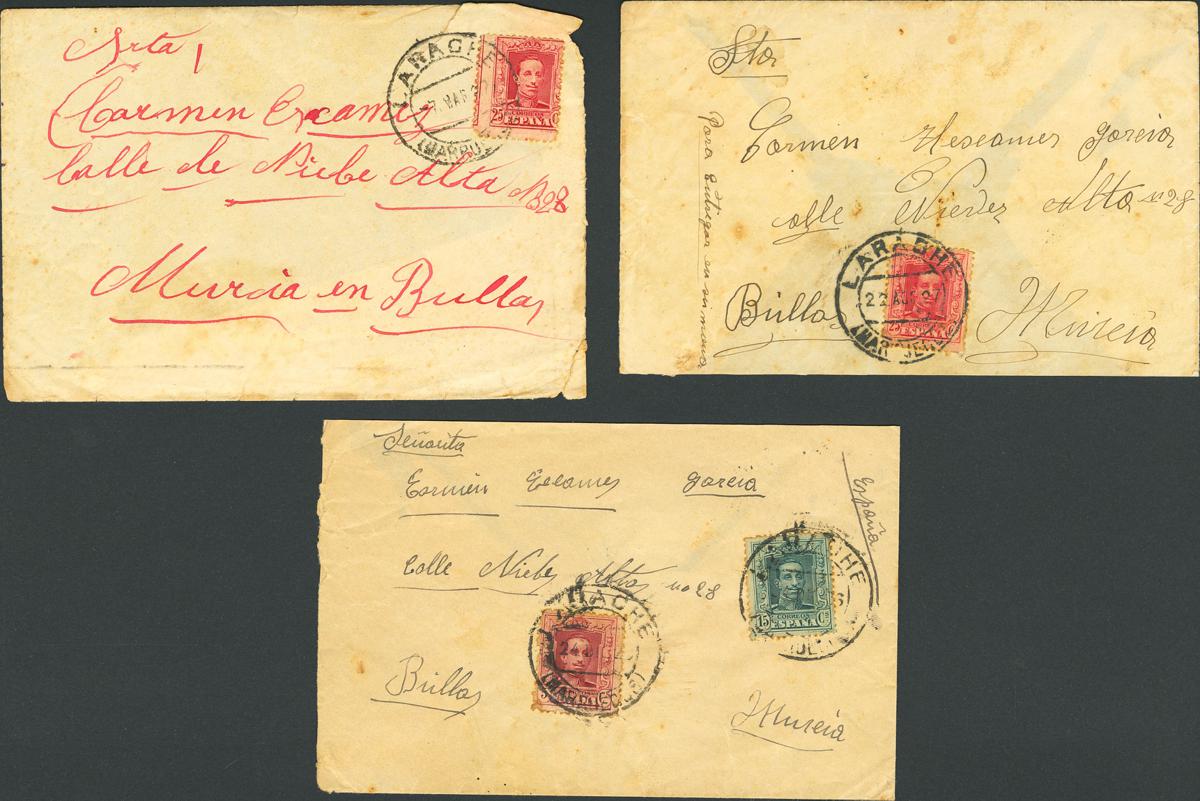 Srta
Carmen Excames
Calle de Niebe Alta N28
Murcia en Bullas
LARACHE
MAR
(MARRU
25 CORREOS
ESPAÑA
Sta
Carmen Hescames Garcia
calle Nievez Alta nº 28
Bullas Murcia
Para Entregar en su mano
LARACHE
22 AGT 27
(MARRUECOS)
25
ESPAÑA
Señorita
Carmen Escames Garcia
España
Calle Niebes Altas no 28
Bullas
Murcia
LARACHE
24
(MARRUECOS)
LARACHE
15 CORREOS Cs
ESPAÑA